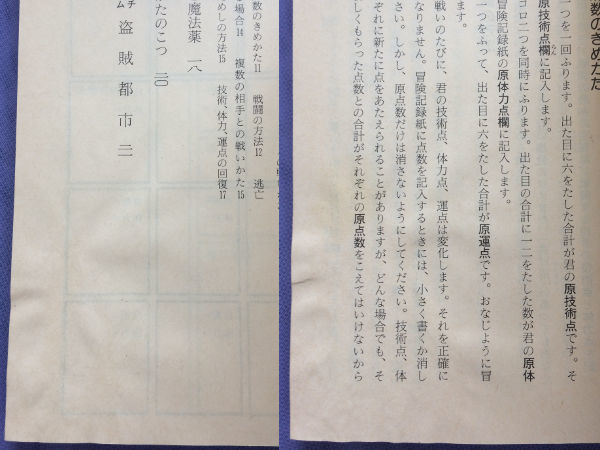 数のきめかた11　戦闘の方法12　逃亡
場合14　複数の相手との戦いかた15
めしの方法15　技術、体力、運点の回復17
魔法薬　一八
たのこつ　二〇
盗賊都市　二一
数のきめかた
つを一回ふります。出た目に六をたした合計が君の原技術点です。そ
原技術点欄に記入します。
コロ二つを同時にふります。出た目の合計に一二をたした数が君の原体
冒険記録紙の原体力点欄に記入します。
一つをふって、出た目に六をたした合計が原運点です。おなじように冒
ます。
戦いのたびに、君の技術点、体力点、運点は変化します。それを正確に
なりません。冒険記録紙に点数を記入するときには、小さく書くか消し
さい。しかし、原点数だけは消さないようにしてください。技術点、体
ぞれに新たに点をあたえられることがありますが、どんな場合でも、そ
しくもらった点数との合計がそれぞれの原点数をこえてはいけないから